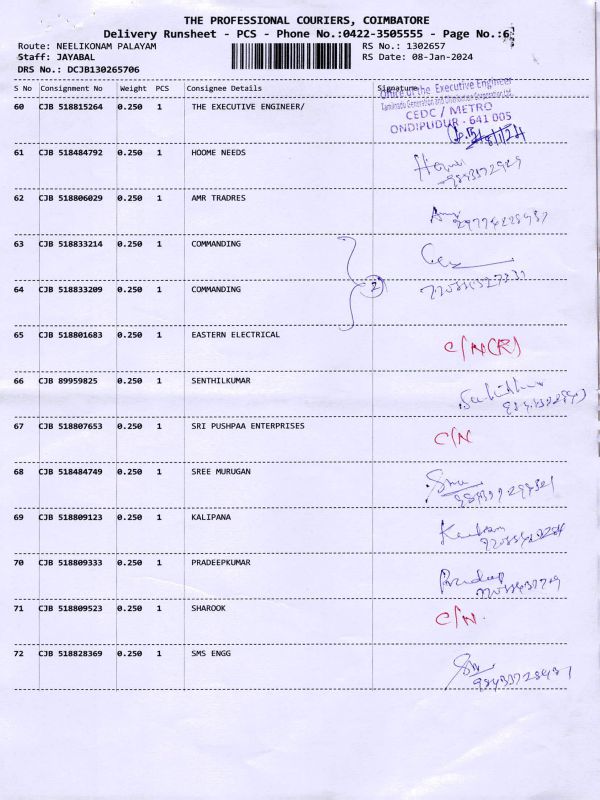 THE PROFESSIONAL COURIERS, COIMBATORE
Delivery Runsheet - PCS - Phone No.:0422-3505555 - Page No.:6
Route: NEELIKONAM PALAYAM RS No.: 1302657
Staff: JAYABAL RS Date: 08-Jan-2024
DRS No.: DCJB130265706
S No Consignment No Weight PCS Consignee Details Signature
Office of the Executive Engineer
60 CJB 518815264 0.250 1 THE EXECUTIVE ENGINEER/
Tamilnadu Generation and Distribution Corporation Ltd.
CEDC / METRO
ONDIPUDUR - 641 005
61 CJB 518484792 0.250 1 HOOME NEEDS
62 CJB 518806029 0.250 1 AMR TRADRES
63 CJB 518833214 0.250 1 COMMANDING
64 CJB 518833209 0.250 1 COMMANDING 2
65 CJB 518801683 0.250 1 EASTERN ELECTRICAL C/N(R)
66 CJB 89959825 0.250 1 SENTHILKUMAR
67 CJB 518807653 0.250 1 SRI PUSHPAA ENTERPRISES C/N
68 CJB 518484749 0.250 1 SREE MURUGAN
69 CJB 518809123 0.250 1 KALIPANA
70 CJB 518809333 0.250 1 PRADEEPKUMAR Pradeep
71 CJB 518809523 0.250 1 SHAROOK C/N.
72 CJB 518828369 0.250 1 SMS ENGG